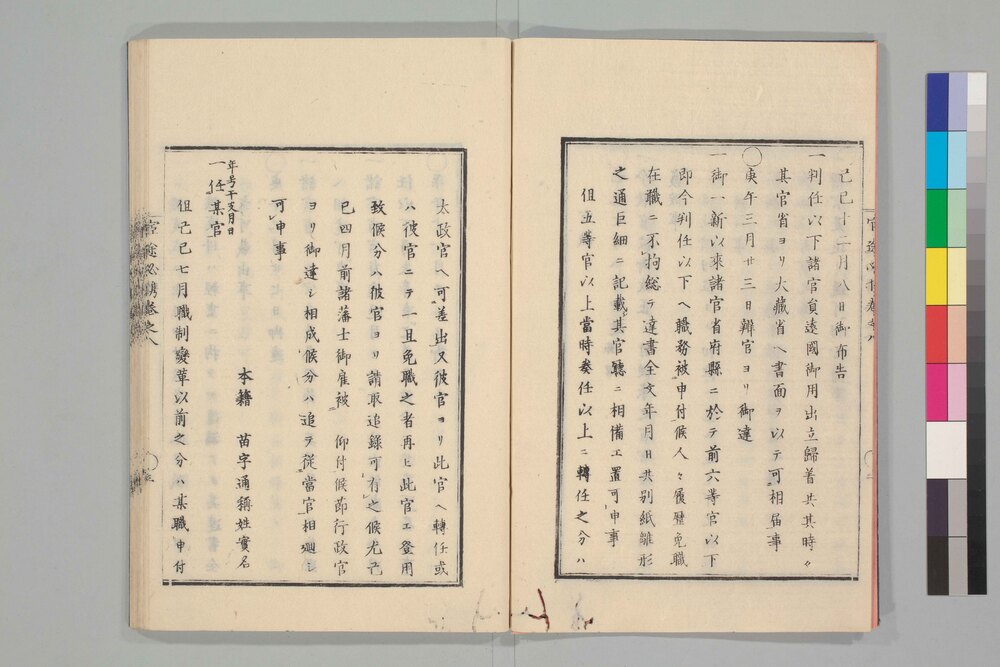 己巳十二月八日御布告
一判任以下諸官員遠國御用出立歸着共其時々
其官省ヨリ大藏省ヘ書面ヲ以テ可相届事
○庚午三月廿三日辨官ヨリ御達
一御一新以來諸官省府縣ニ於テ前六等官以下
即今判任以下ヘ職務被申付候人々履歷免職
在職ニ不拘総テ達書全文年月日共別紙雛形
之通巨細ニ記載其官聽ニ相備エ置可申事
但五等官以上當時奏任以上ニ轉任之分ハ
太政官ヘ可差出又彼官ヨリ此官ヘ轉任或
ハ彼官ニテ一旦免職之者再ヒ此官エ登用
致候分ハ彼官ヨリ請取追錄可有之候尤己
巳四月前諸藩士御雇被 仰付候節行政官
ヨリ御達シ相成候分ハ追テ從當官相廻シ
可申事
本籍 苗字通稱姓實名
年号干支月日
一任某官
但己巳七月職制變革以前之分ハ某職申付